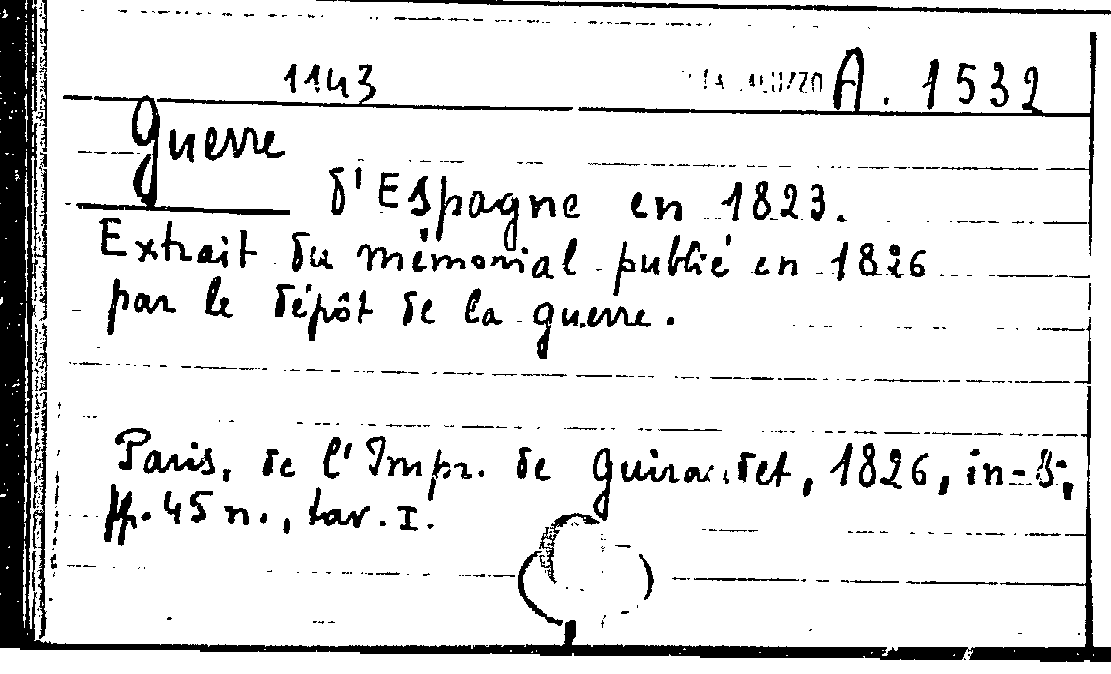 1143 A. 1532
Guerre
d'Espagne en 1823.
Extrait du mémorial publié en 1826
par le dépôt de la guerre.
Paris, de l'Impr. de Guiraudet, 1826, in-8°,
pp. 45 n., tav. I.